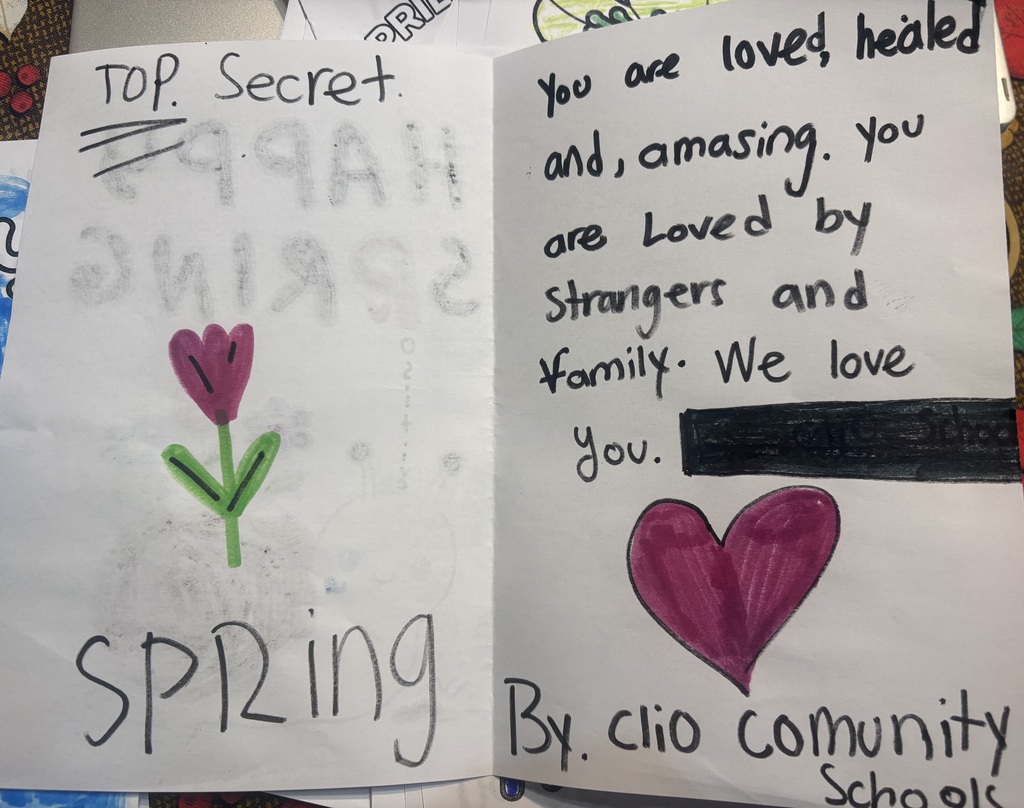 PRIL
TOP. Secret.
HAPPY
SPRING
SPRing
You are loved, healed
and, amasing. you
are Loved by
Strangers and
family. We love
you.
By. clio comunity
Schools